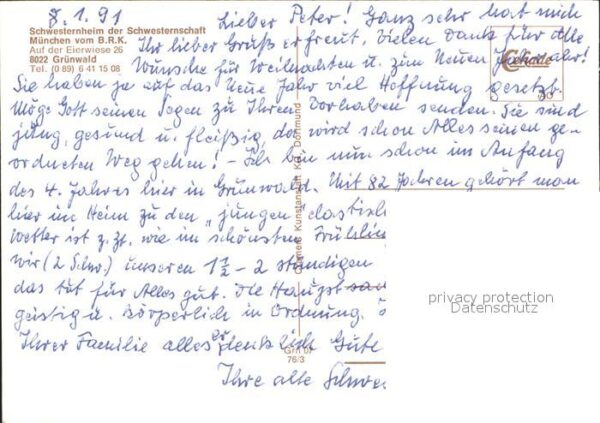 8.1.91
Schwesternheim der Schwesternschaft
München vom B.R.K.
Auf der Eierwiese 26
8022 Grünwald
Tel. (0 89) 6 41 15 08
Lieber Peter! Ganz sehr hat mich
Ihr lieber Gruß erfreut, vielen Dank für Alle
Wünsche für Weihnachten u. zum Neuen Jahr!
Sie haben ja auf das Neue Jahr viel Hoffnung gesetzt.
Mög Gott seinen Segen zu Ihrem Vorhaben senden. Sie sind
jung, gesund u. fleißig, da wird schon Alles seinen ge-
ordneten Weg gehn! - Ich bin nun schon im Anfang
des 4. Jahres hier in Grünwald. Mit 82 Jahren gehört man
hier im Heim zu den "jungen
Wetter ist z. Zt. wie im schönsten Frühlin
wir (2 Schw.) unseren 1½ - 2 stündigen
das tut für Alles gut. Die Haupts
geistig u. körperlich in Ordnung.
Ihrer Familie alles Gute
Ihre alte Schwe
Cramers Kunstanstalt KG, Dortmund
Grü 07
76/3
privacy protection
Datenschutz